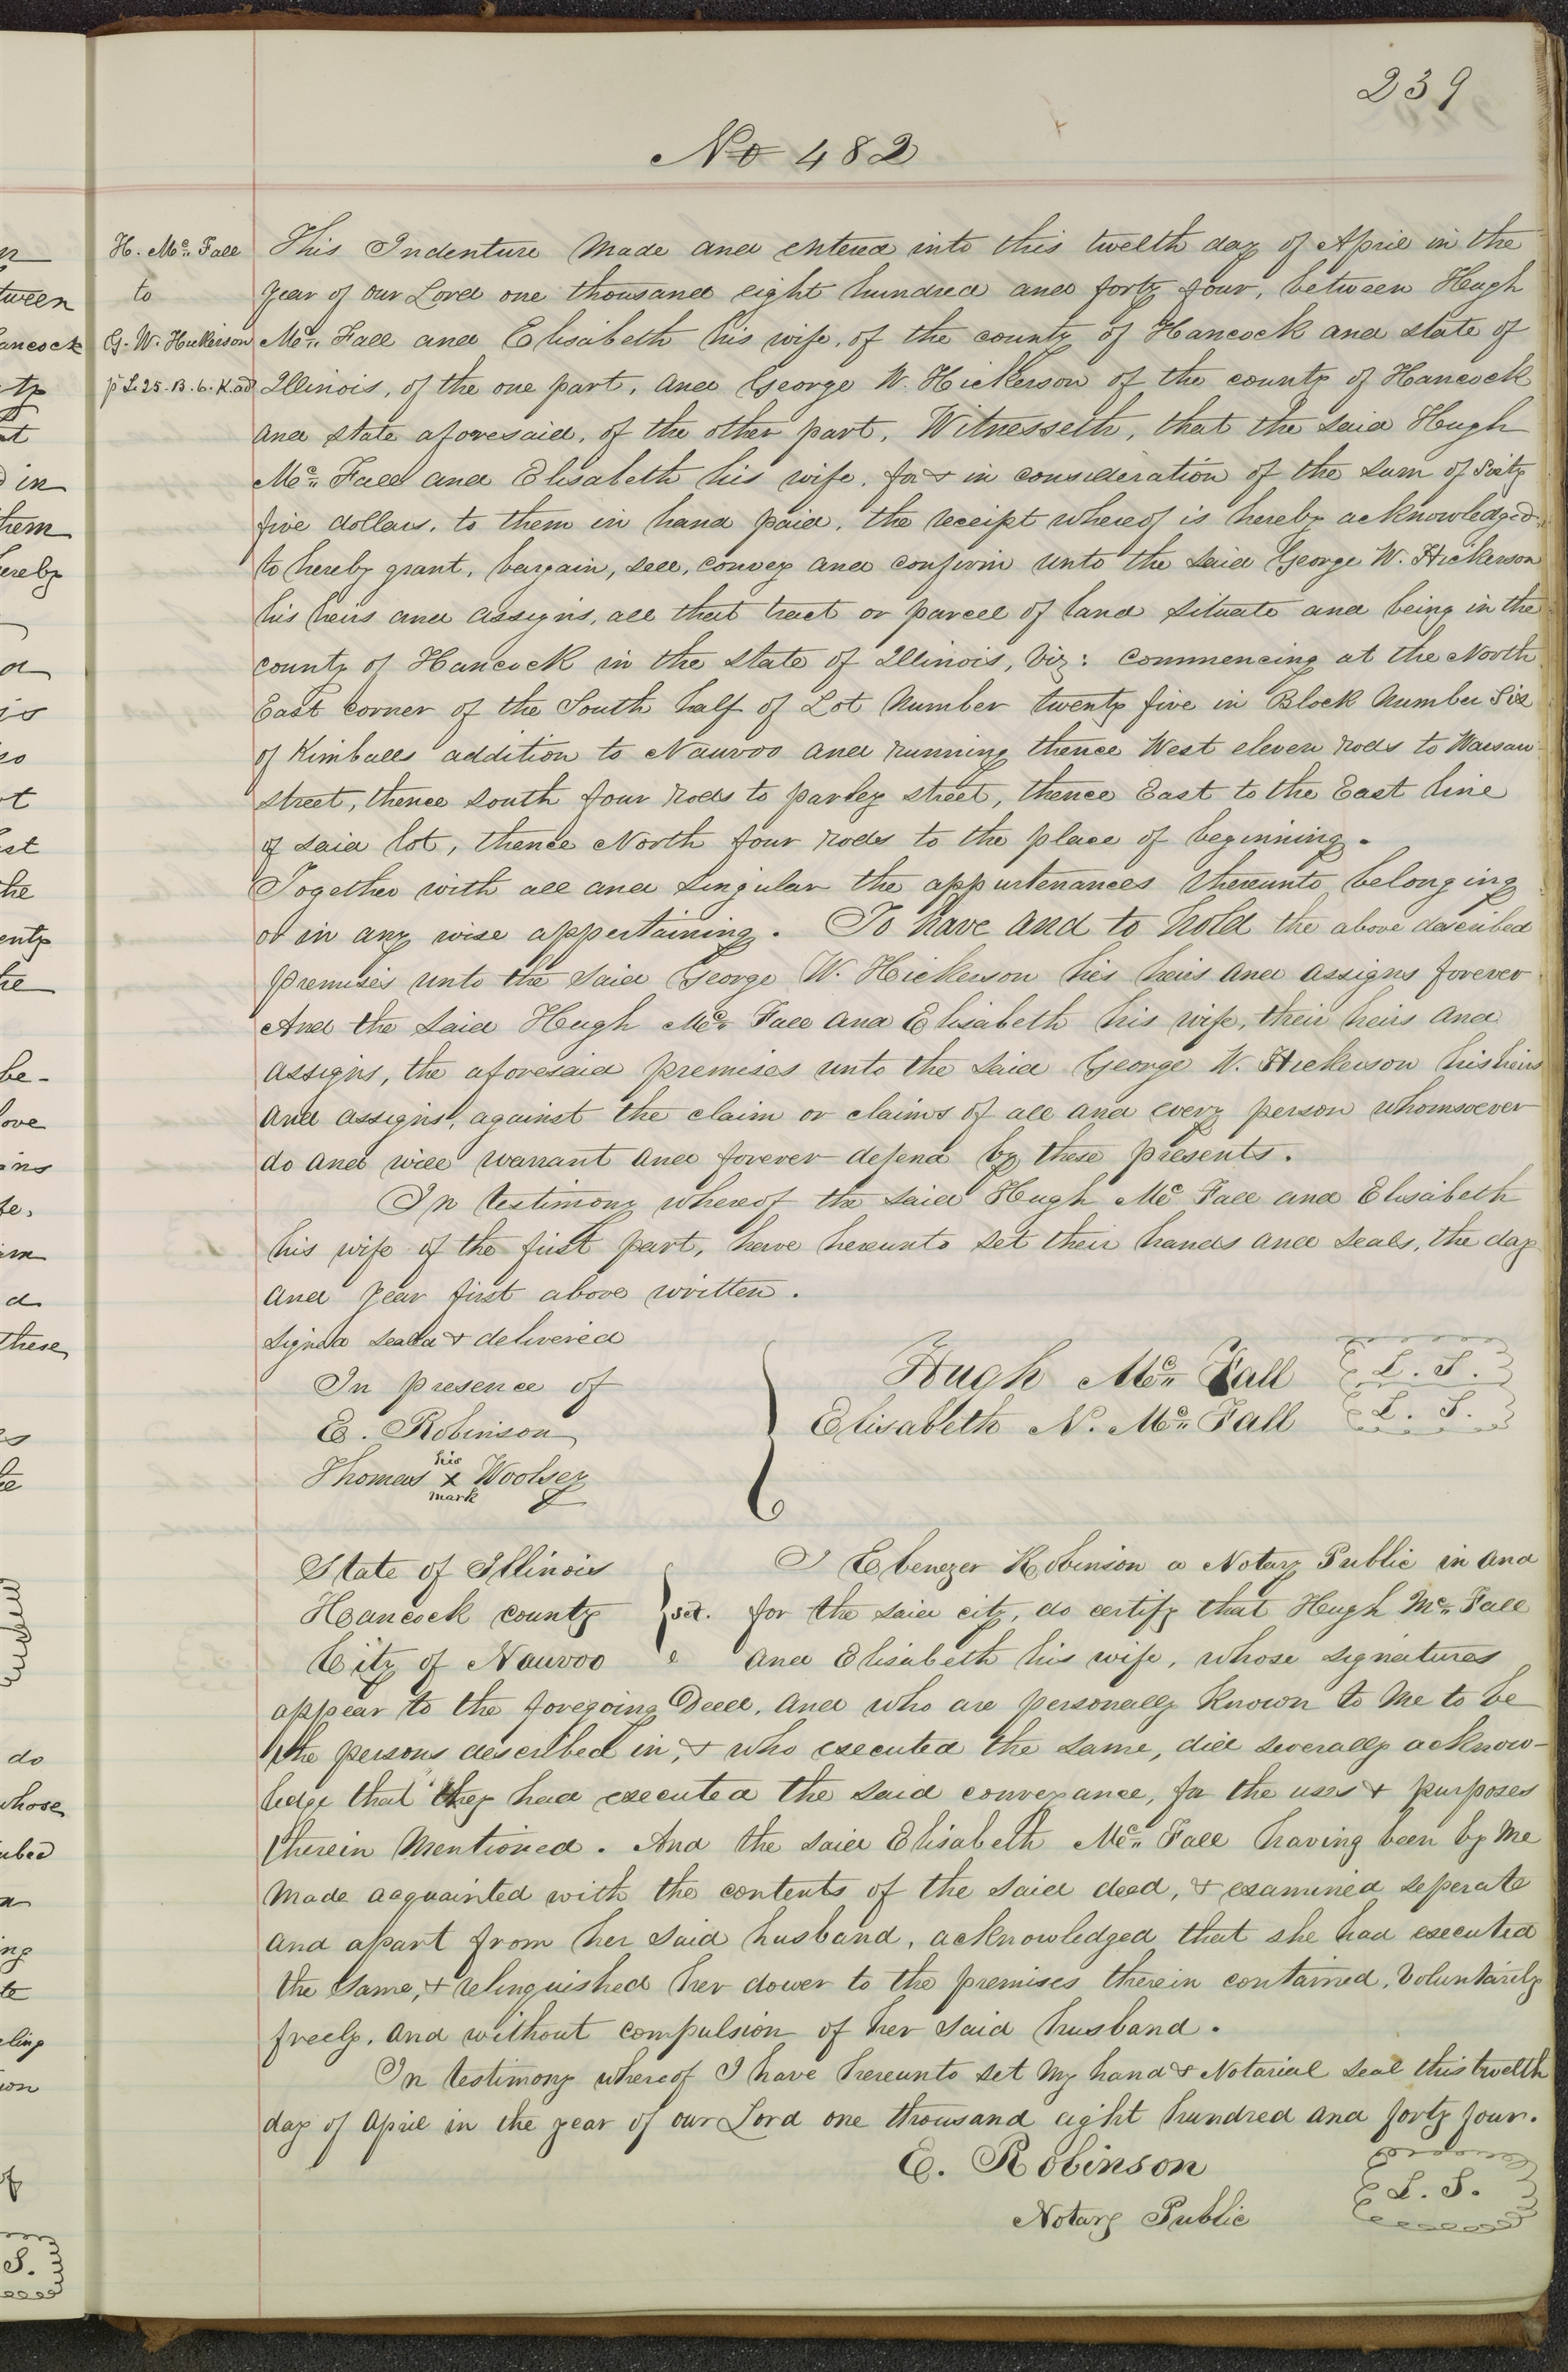 239
No 482
H. Mc. Fall
to
G. W. Hickerson
p L. 25. B. 6. K. ad
This Indenture made and entered into this twelth day of April in the
year of our Lord one thousand eight hundred and forty four, between Hugh
Mc. Fall and Elisabeth his wife, of the county of Hancock and state of
Illinois, of the one part, and George W. Hickerson of the county of Hancock
and state aforesaid, of the other part, Witnesseth, that the said Hugh
Mc. Fall and Elisabeth his wife, for & in consideration of the sum of Sixty
five dollars, to them in hand paid, the receipt whereof is hereby acknowledged
to hereby grant, bargain, sell, convey and confirm unto the said George W. Hickerson
his heirs and assigns, all that tract or parcel of land situate and being in the
county of Hancock in the state of Illinois, Viz: commencing at the North
East corner of the South half of Lot Number twenty five in Block Number Six
of Kimballs addition to Nauvoo and running thence West eleven rods to Warsaw
street, thence south four rods to parley street, thence East to the East line
of said lot, thence North four rods to the place of beginning.
Together with all and singular the appurtenances thereunto belonging
or in any wise appertaining. To have and to hold the above described
premises unto the said George W. Hickerson his heirs and assigns forever
And the said Hugh Mc. Fall and Elisabeth his wife, their heirs and
assigns, the aforesaid premises unto the said George W. Hickerson his heirs
and assigns, against the claim or claims of all and every person whomsoever
do and will warrant and forever defend by these presents.
In testimony whereof the said Hugh Mc Fall and Elisabeth
his wife of the first part, have hereunto set their hands and seals, the day
and year first above written.
Signed sealed & delivered
In presence of
E. Robinson
Thomas his x mark Woolsey
Hugh Mc. Fall L. S.
Elisabeth N. Mc. Fall L. S.
State of Illinois
Hancock county } sct.
City of Nauvoo
I Ebenezer Robinson a Notary Public in and
for the said city, do certify that Hugh Mc. Fall
and Elisabeth his wife, whose signatures
appear to the foregoing Deed, and who are personally known to me to be
the persons described in, & who executed the same, did severally acknow-
ledge that they had executed the said conveyance, for the uses & purposes
therein mentioned. And the said Elisabeth Mc. Fall having been by me
made acquainted with the contents of the said deed, & examined seperate
and apart from her said husband, acknowledged that she had executed
the same, & relinquished her dower to the premises therein contained, Voluntarily
freely, and without compulsion of her said husband.
In testimony whereof I have hereunto set my hand & Notarial seal this twelth
day of April in the year of our Lord one thousand eight hundred and forty four.
E. Robinson L. S.
Notary Public